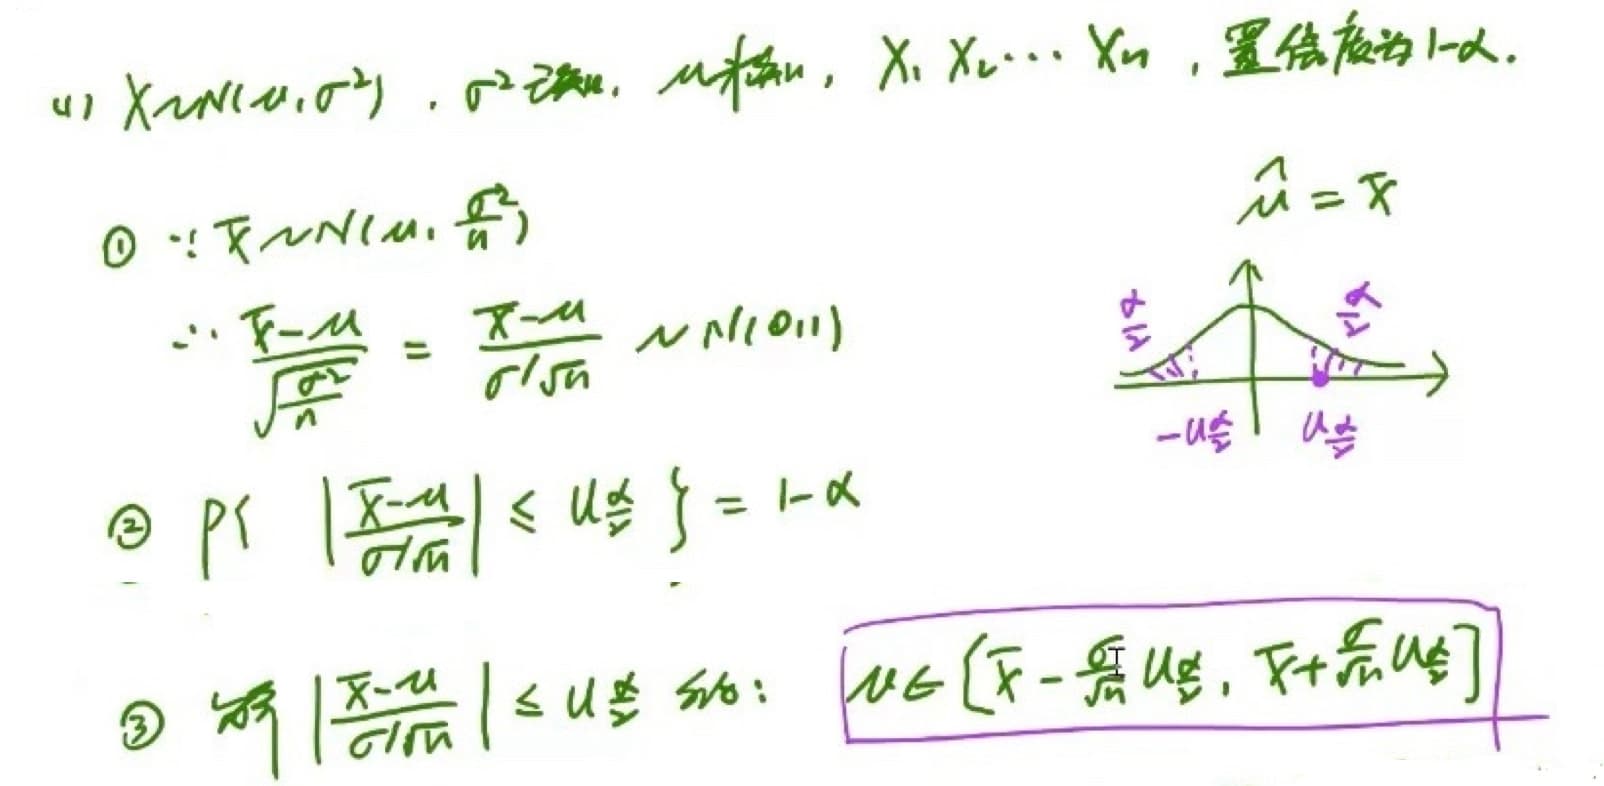 (1) X~N(μ,σ²), σ²已知, μ未知, X₁ X₂⋯Xₙ, 置信度为1-α.
μ̂ = X̄
① ∵ X̄~N(μ, σ²/n)
∴ (X̄-μ)/√(σ²/n) = (X̄-μ)/(σ/√n) ~ N(0,1)
α/2 α/2
-u_{α/2} u_{α/2}
② P{ |(X̄-μ)/(σ/√n)| ≤ u_{α/2} } = 1-α
③ 解 |(X̄-μ)/(σ/√n)| ≤ u_{α/2} : μ∈[X̄ - σ/√n u_{α/2}, X̄ + σ/√n u_{α/2}]